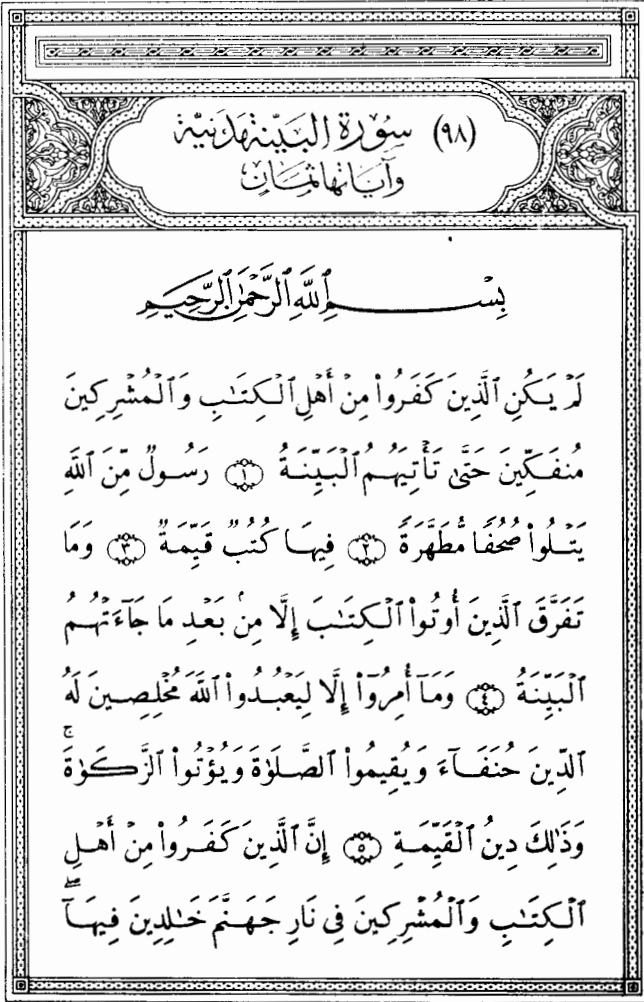 (٩٨) سُورَة البَيِّنَة مَدَنِيَّة
وَآيَاتُهَا ثَمَانٍ
بِسْمِ ٱللَّهِ ٱلرَّحْمَٰنِ ٱلرَّحِيمِ
لَمْ يَكُنِ ٱلَّذِينَ كَفَرُوا۟ مِنْ أَهْلِ ٱلْكِتَٰبِ وَٱلْمُشْرِكِينَ
مُنفَكِّينَ حَتَّىٰ تَأْتِيَهُمُ ٱلْبَيِّنَةُ ١ رَسُولٌ مِّنَ ٱللَّهِ
يَتْلُوا۟ صُحُفًا مُّطَهَّرَةً ٢ فِيهَا كُتُبٌ قَيِّمَةٌ ٣ وَمَا
تَفَرَّقَ ٱلَّذِينَ أُوتُوا۟ ٱلْكِتَٰبَ إِلَّا مِنۢ بَعْدِ مَا جَآءَتْهُمُ
ٱلْبَيِّنَةُ ٤ وَمَآ أُمِرُوٓا۟ إِلَّا لِيَعْبُدُوا۟ ٱللَّهَ مُخْلِصِينَ لَهُ
ٱلدِّينَ حُنَفَآءَ وَيُقِيمُوا۟ ٱلصَّلَوٰةَ وَيُؤْتُوا۟ ٱلزَّكَوٰةَ ۚ
وَذَٰلِكَ دِينُ ٱلْقَيِّمَةِ ٥ إِنَّ ٱلَّذِينَ كَفَرُوا۟ مِنْ أَهْلِ
ٱلْكِتَٰبِ وَٱلْمُشْرِكِينَ فِى نَارِ جَهَنَّمَ خَٰلِدِينَ فِيهَآ ۖ